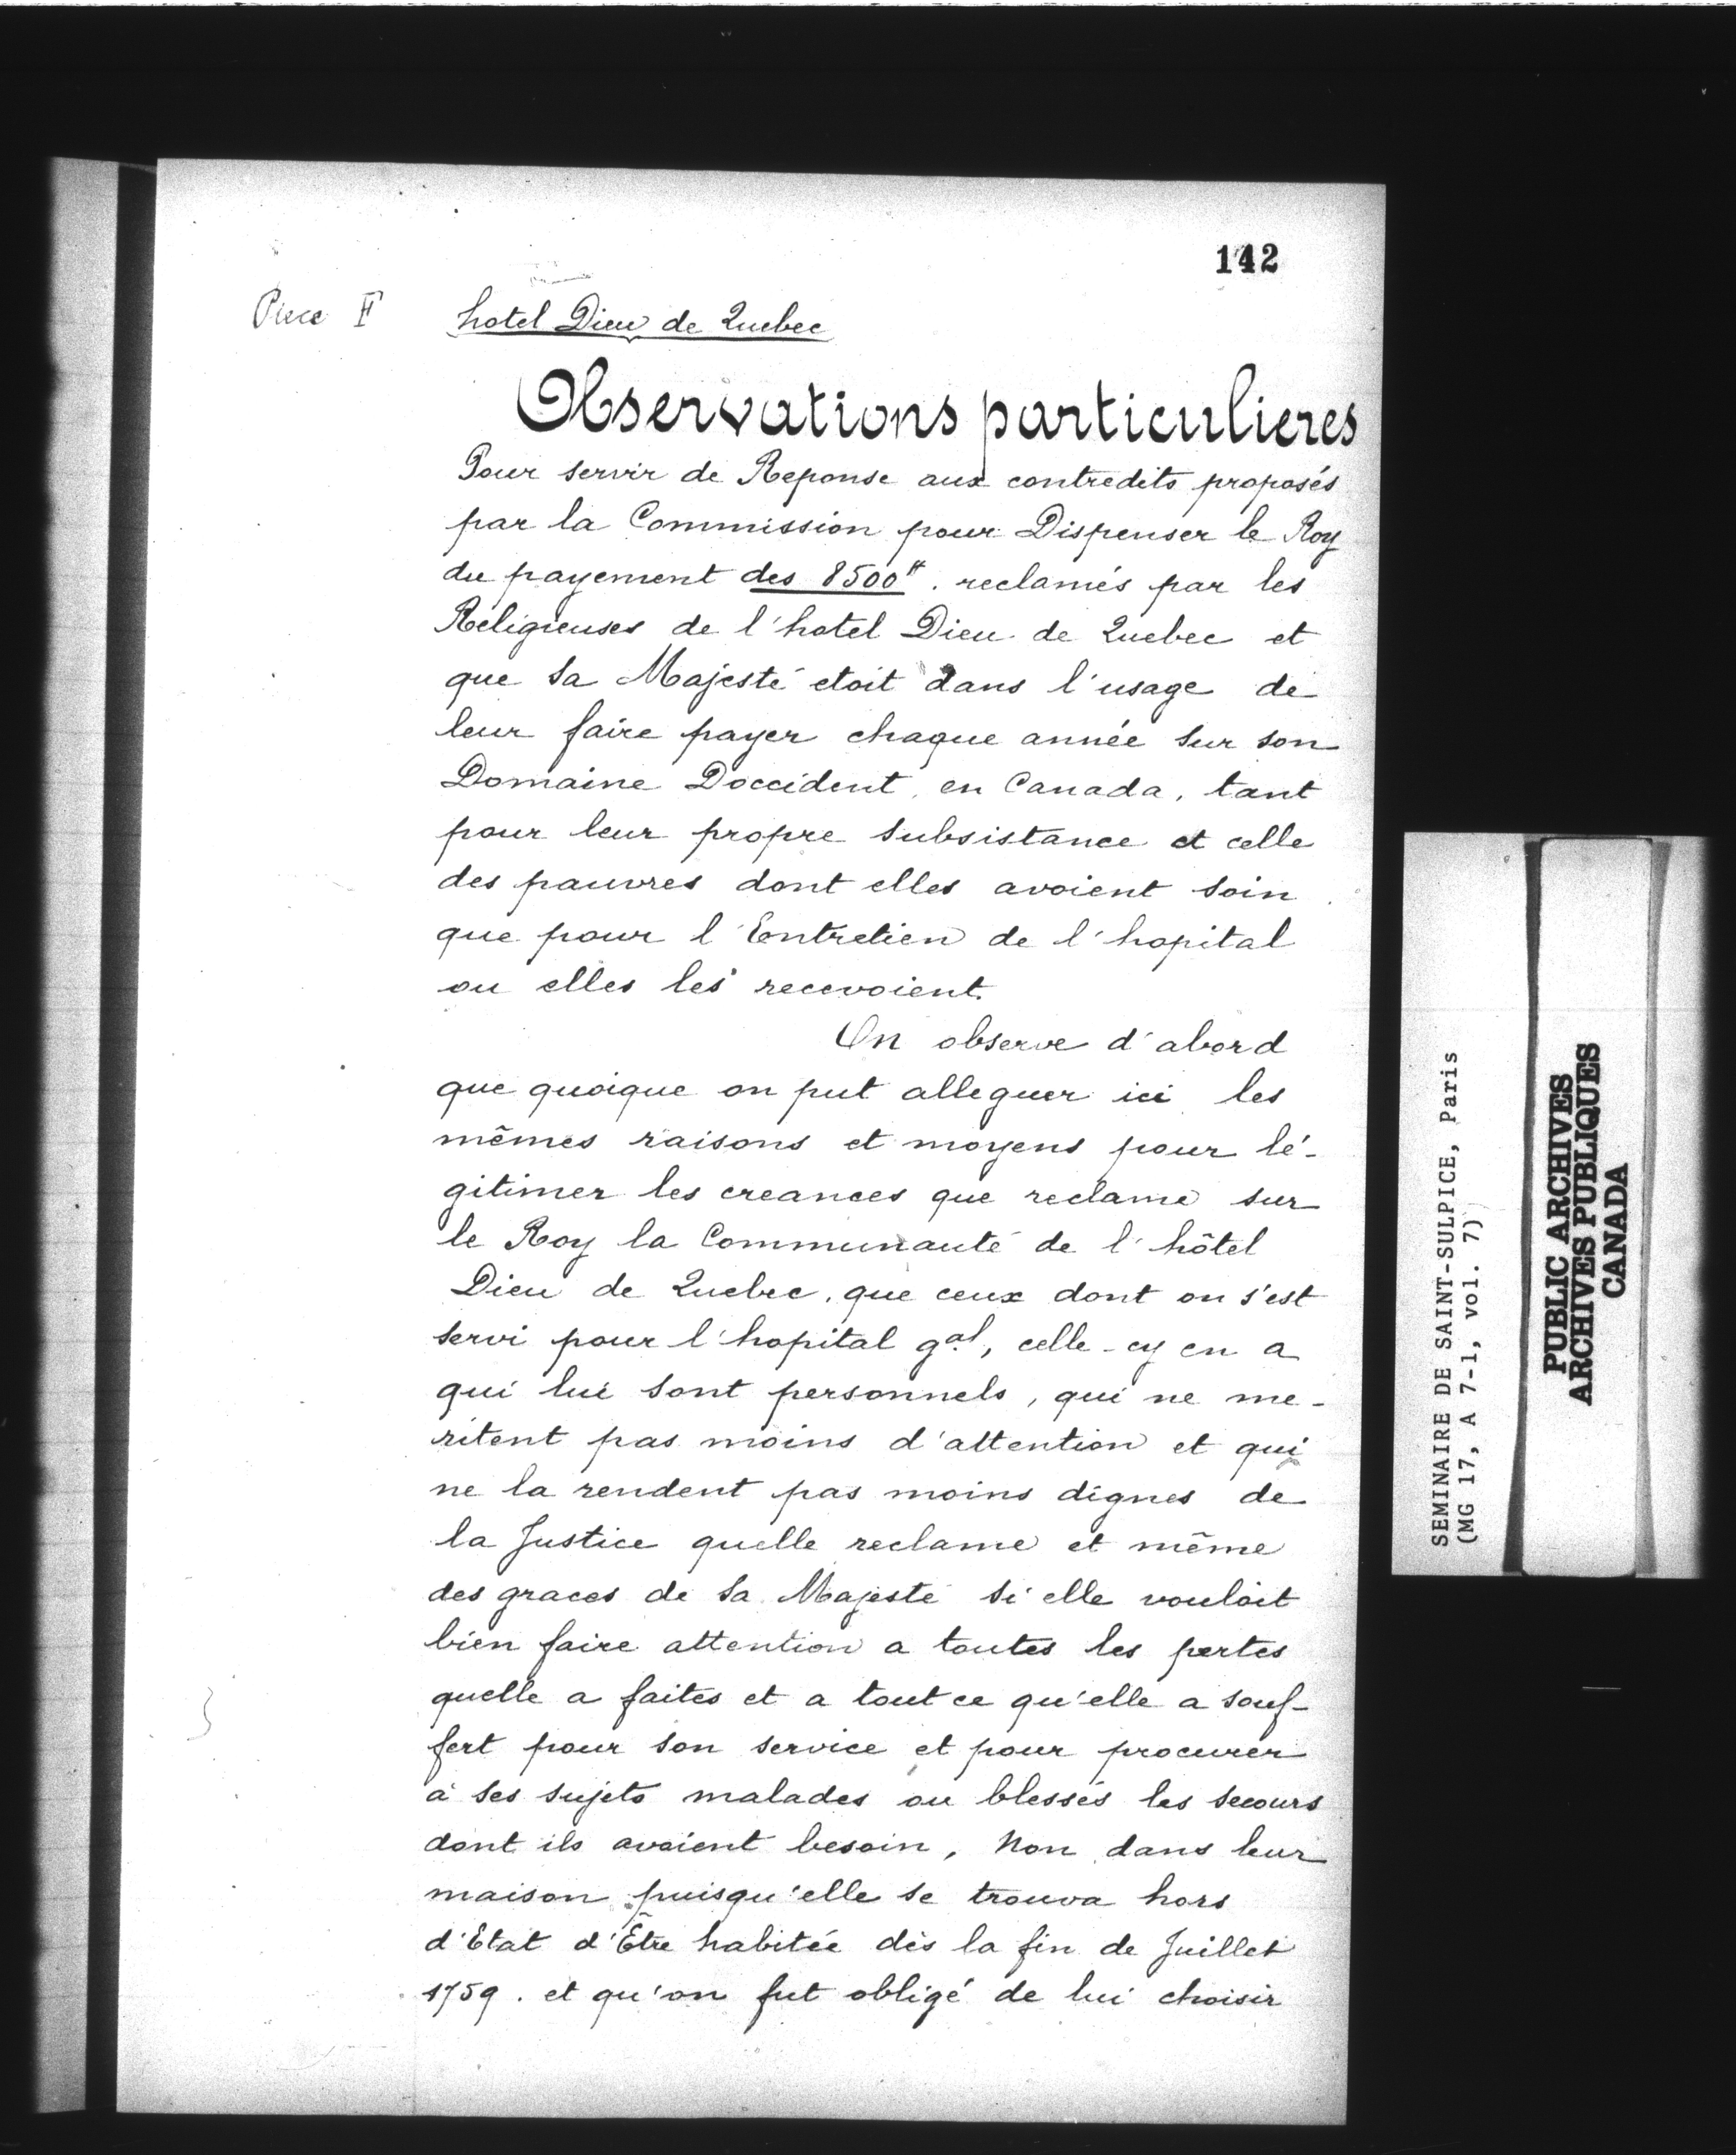 142
Piece F
hotel Dieu de Quebec
Observations particulieres
Pour servir de Reponse aux contredits proposés
par la Commission pour Dispenser le Roy
du payement des 8500#. reclamés par les
Religieuses de l'hotel Dieu de Quebec et
que sa Majesté etoit dans l'usage de
leur faire payer chaque année sur son
Domaine Doccident, en Canada, tant
pour leur propre subsistance et celle
des pauvres dont elles avoient soin
que pour l'Entretien de l'hopital
ou elles les recevoient.
On observe d'abord
que quoique on put alleguer ici les
mêmes raisons et moyens pour lé-
gitimer les creances que reclame sur
le Roy la Communauté de l'hôtel
Dieu de Quebec, que ceux dont on s'est
servi pour l'hopital gal, celle-cy en a
qui lui sont personnels, qui ne me-
ritent pas moins d'attention et qui
ne la rendent pas moins dignes de
la Justice quelle reclame et même
des graces de sa Majesté si elle vouloit
bien faire attention a toutes les pertes
quelle a faites et a tout ce qu'elle a souf-
fert pour son service et pour procurer
à ses sujets malades ou blessés les secours
dont ils avoient besoin, Non dans leur
maison puisqu'elle se trouva hors
d'Etat d'Être habitée dès la fin de Juillet
1759. et qu'on fut obligé de lui choisir
SEMINAIRE DE SAINT-SULPICE, Paris
(MG 17, A 7-1, vol. 7)
PUBLIC ARCHIVES
ARCHIVES PUBLIQUES
CANADA